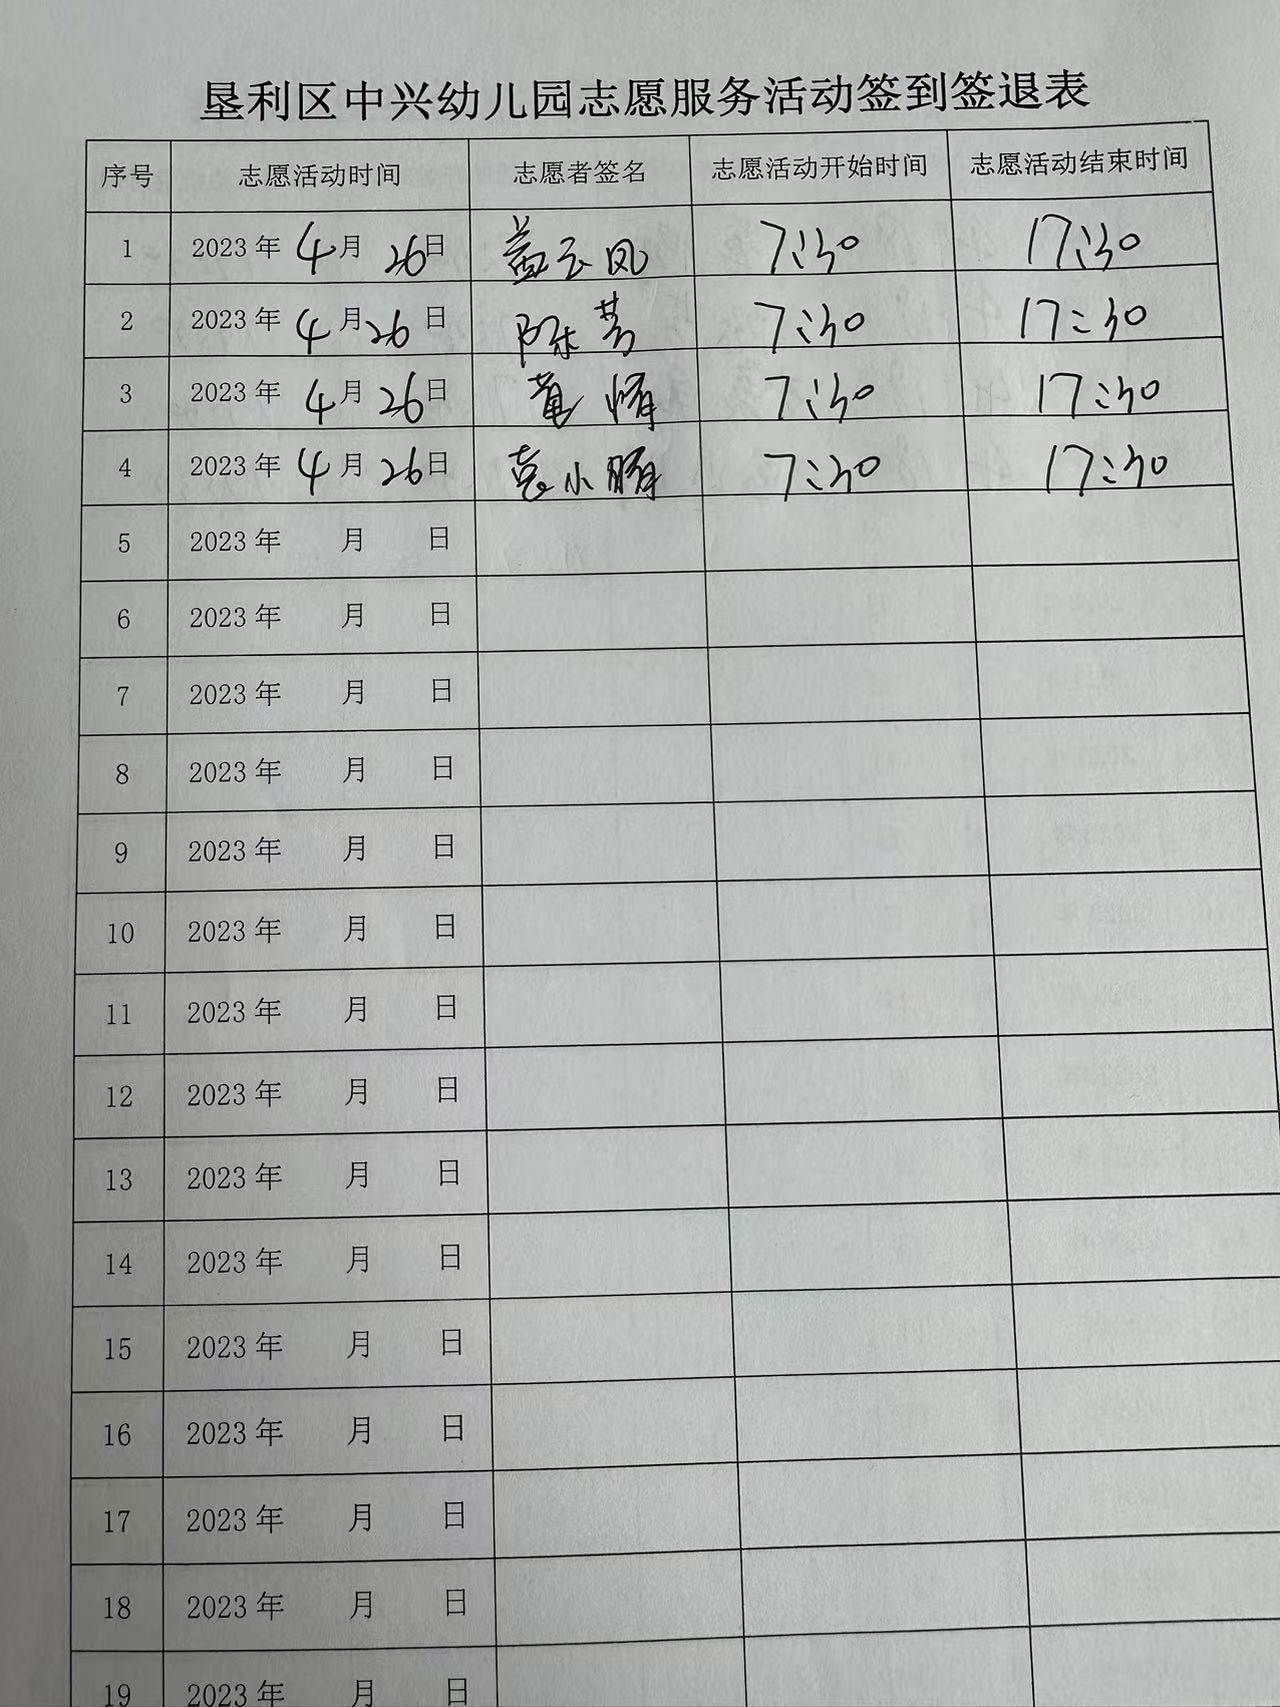 垦利区中兴幼儿园志愿服务活动签到签退表
序号 志愿活动时间 志愿者签名 志愿活动开始时间 志愿活动结束时间
1 2023年 4月 26日 盖玉凤 7:30 17:30
2 2023年 4月26日 陈芳 7:30 17:30
3 2023年 4月26日 黄 7:30 17:30
4 2023年 4月26日 袁小 7:30 17:30
5 2023年 月 日
6 2023年 月 日
7 2023年 月 日
8 2023年 月 日
9 2023年 月 日
10 2023年 月 日
11 2023年 月 日
12 2023年 月 日
13 2023年 月 日
14 2023年 月 日
15 2023年 月 日
16 2023年 月 日
17 2023年 月 日
18 2023年 月 日
19 2023年 月 日